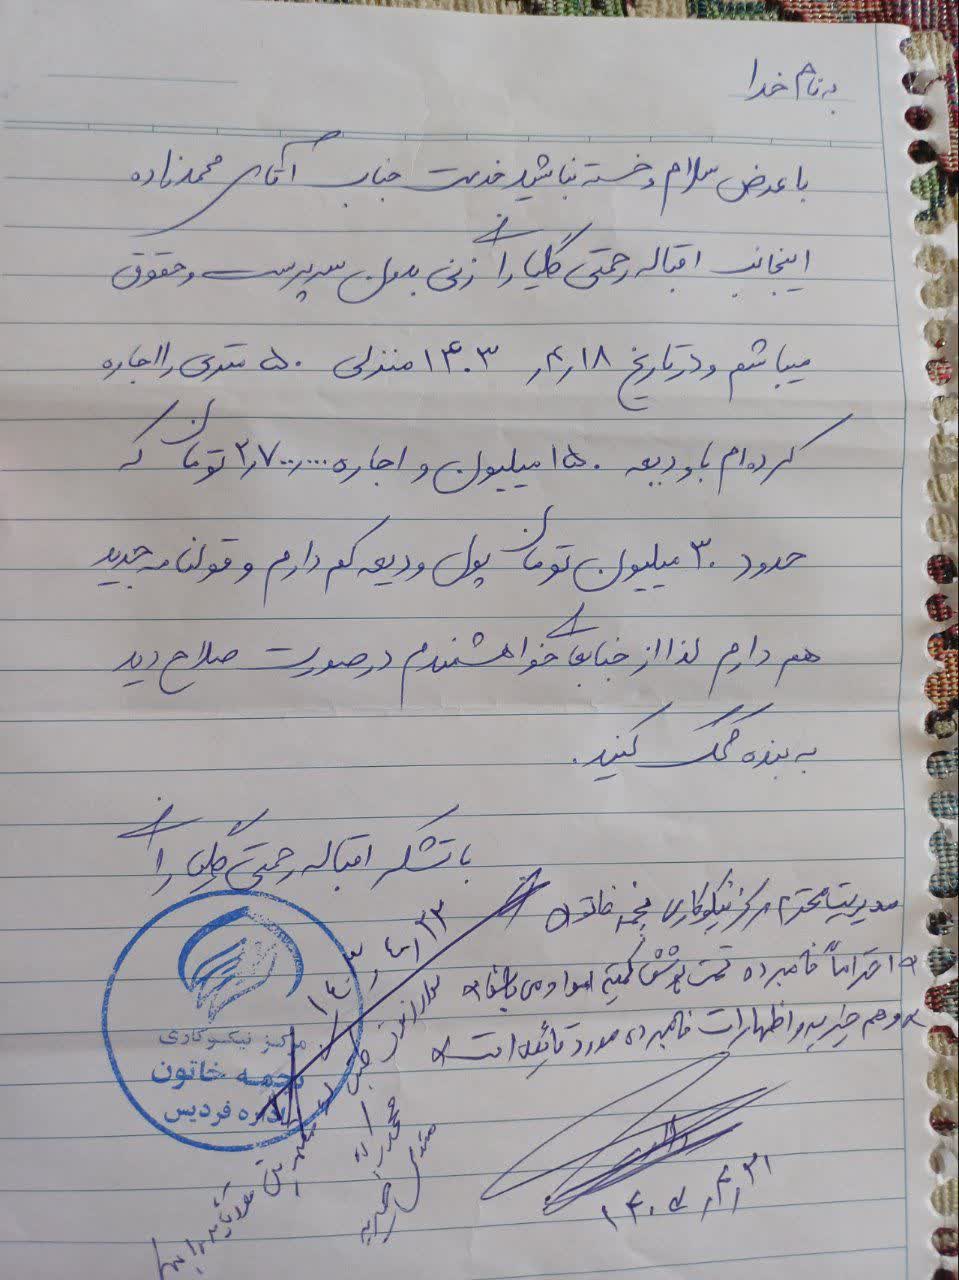 به نام خدا
با عرض سلام و خسته نباشید خدمت جناب آقای محمدزاده
اینجانب اقباله رحمتی گلیارانی زنی بدون سرپرست و حقوق
میباشم و در تاریخ ۱۴۰۳٫۴٫۱۸ منزلی ۵۰ متری را اجاره
کرده‌ام با ودیعه ۱۵۰ میلیون و اجاره ۲٫۷۰۰٫۰۰۰ تومان که
حدود ۳۰ میلیون تومان پول ودیعه کم دارم و قولنامه جدید
هم دارم لذا از جنابعالی خواهشمندم در صورت صلاح دید
به بنده کمک کنید.
با تشکر اقباله رحمتی گلیارانی
مدیریت محترم مرکز نیکوکاری نجمه خاتون
احتراماً نامبرده تحت پوشش کمیته امداد می باشد
و هم جزییه و اظهارات نامبرده مورد تائید است
۱۴۰۳٫۴٫۲۳
مرکز نیکوکاری
نجمه خاتون
اداره فردیس
محمدزاده